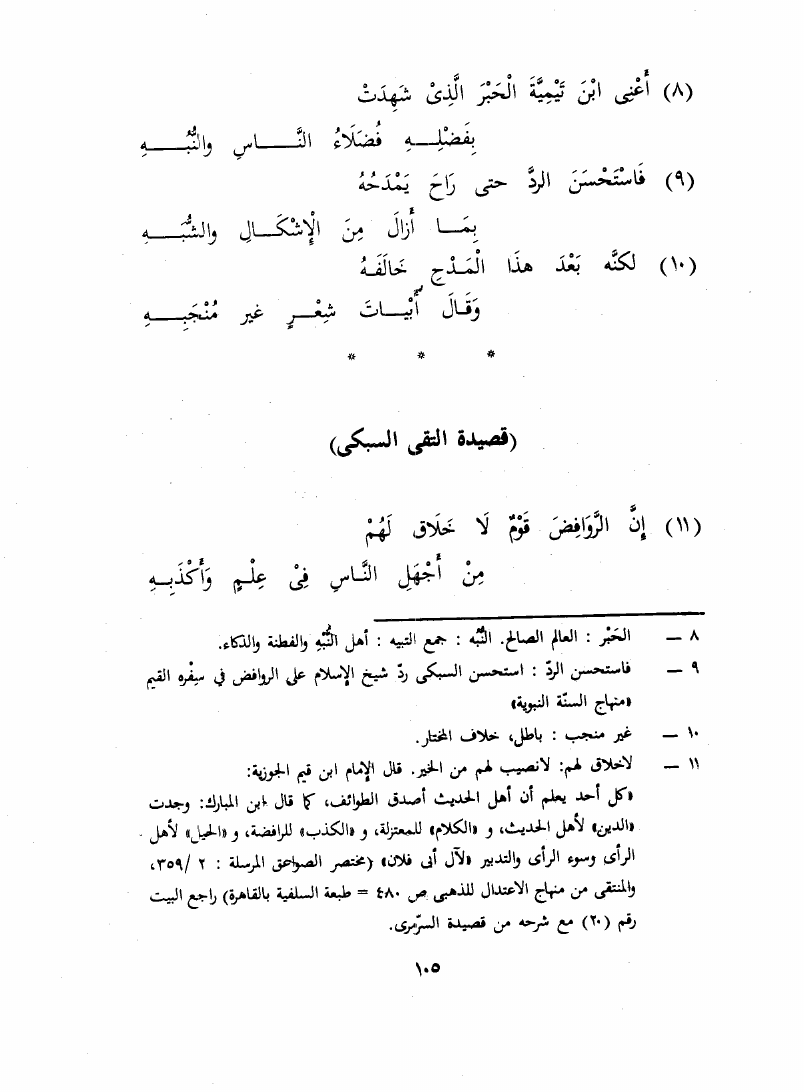 (٨) أَعْنِى ابْنَ تَيْمِيَّةَ الْحَبْرَ الَّذِىْ شَهِدَتْ
بِفَضْلِـــهِ فُضَلَاءُ النَّـــاسِ والنُّبُـــهِ
(٩) فَاسْتَحْسَنَ الردَّ حتى رَاحَ يَمْدَحُهُ
بِمَـــا أَزَالَ مِنَ الْإِشْكَـــالِ والشُّبَـــهِ
(١٠) لكنَّه بَعْدَ هذَا الْمَـدْحِ خَالَفَـهُ
وَقَالَ أَبْيـــاتَ شِعْـــرٍ غير مُنْجَبِـــهِ
* * *
(قصيدة التقى السبكى)
(١١) إِنَّ الرَّوَافِضَ قَوْمٌ لَا خَلَاق لَهُمْ
مِنْ أَجْهَلِ النَّـاسِ فِىْ عِلْـمٍ وَأَكْذَبِـهِ
٨ — الحَبْر : العالم الصالح. النُّبُه : جمع النبيه : أهل النُّبْهِ والفطنة والذكاء.
٩ — فاستحسن الردّ : استحسن السبكى ردّ شيخ الإسلام على الروافض في سِفْره القيم
«منهاج السنّة النبوية»
١٠ — غير منجب : باطل، خلاف المختار.
١١ — لاخلاق لهم: لانصيب لهم من الخير. قال الإمام ابن قيم الجوزية:
«كل أحد يعلم أن أهل الحديث أصدق الطوائف، كما قال ابن المبارك: وجدت
«الدين» لأهل الحديث، و «الكلام» للمعتزلة، و «الكذب» للرافضة، و «الحيل» لأهل
الرأى وسوء الرأى والتدبير «لآل أبى فلان» (مختصر الصواعق المرسلة : ٢ /٣٥٩،
والمنتقى من منهاج الاعتدال للذهبى ص ٤٨٠ = طبعة السلفية بالقاهرة) راجع البيت
رقم (٢٠) مع شرحه من قصيدة السرّمرى.
١٠٥